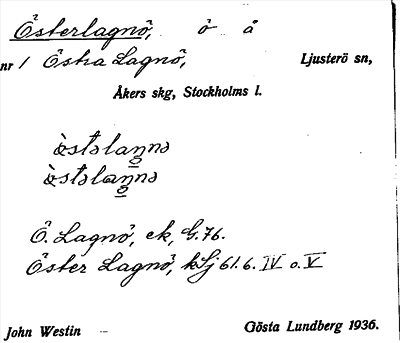 Österlagnö, ö å
nr 1 Östra Lagnö, Ljusterö sn,
Åkers skg, Stockholms l.
Ö. Lagnö, ek, G. 76.
Öster Lagnö, kSj 61. 6. IV o. V
John Westin Gösta Lundberg 1936.